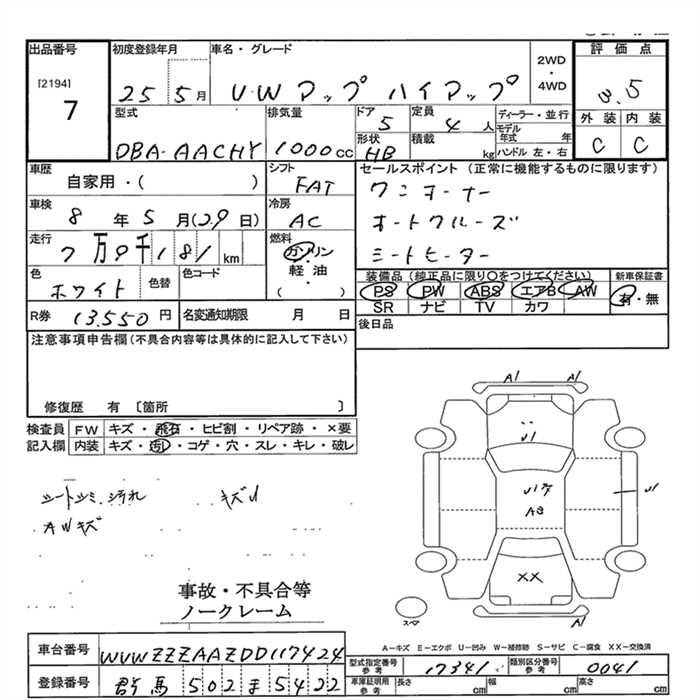 出品番号
[2194]
7
初度登録年月
25 5月
車名・グレード
U・W アップ ハイアップ
2WD
・
4WD
評価点
3.5
外装 内装
C C
型式
DBA-AACHY
排気量
1000cc
ドア
5
定員
4人
形状
HB
積載
kg
ディーラー・並行
モデル年式 年
ハンドル 左・右
車歴
自家用・( )
シフト
FAT
車検
8年5月(29日)
冷房
AC
走行
7万9千181km
燃料
ガソリン
軽油
( )
色
ホワイト
色替
色コード
R券
13,550円
名変通知期限 月 日
セールスポイント (正常に機能するものに限ります)
ワンオーナー
オートクルーズ
シートヒーター
装備品(純正品に限り○をつけてください)
PS PW ABS エアB AW
SR ナビ TV カワ
新車保証書
有・無
後日品
注意事項申告欄(不具合内容等は具体的に記入して下さい)
修復歴 有 〔箇所 〕
検査員記入欄
FW キズ・飛石・ヒビ割・リペア跡・×要
内装 キズ・汚レ・コゲ・穴・スレ・キレ・破レ
シートシミ、汚れ キズU
AWキズ
事故・不具合等
ノークレーム
A1 A1
U1
U1
A3
U1
XX
スマ
A1
A-キズ E-エクボ U-凹み W-補修跡 S-サビ C-腐食 XX-交換済
車台番号
WVWZZZAAZDD117424
登録番号
群馬 502 ま 5422
型式指定番号
参考
17341
類別区分番号
参考
0041
車庫証明用
参考
長さ cm
幅 cm
高さ cm